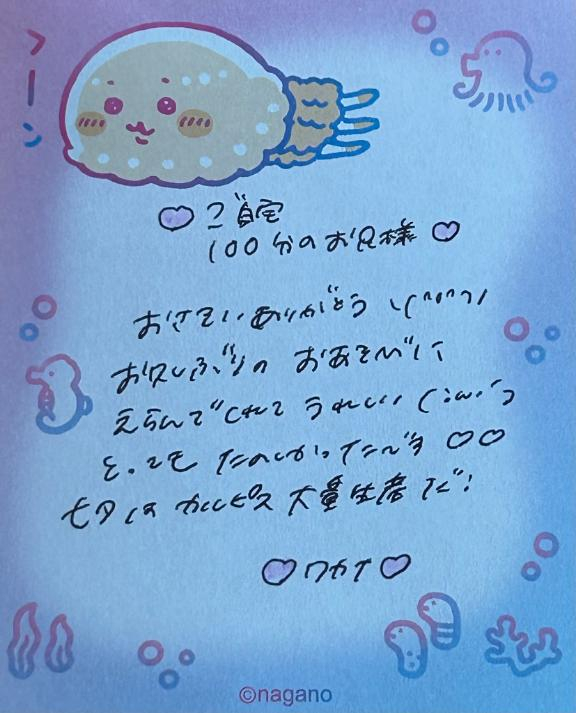 フーン
♡ ご自宅
100分のお兄様 ♡
おさそいありがとう \(^o^)/
お久しぶりの おあそびに
えらんでくれて うれしい (´ω｀)
とっても たのしかったです ♡♡
七夕は カルピス 大量生産 だ!
♡ワカナ♡
©nagano